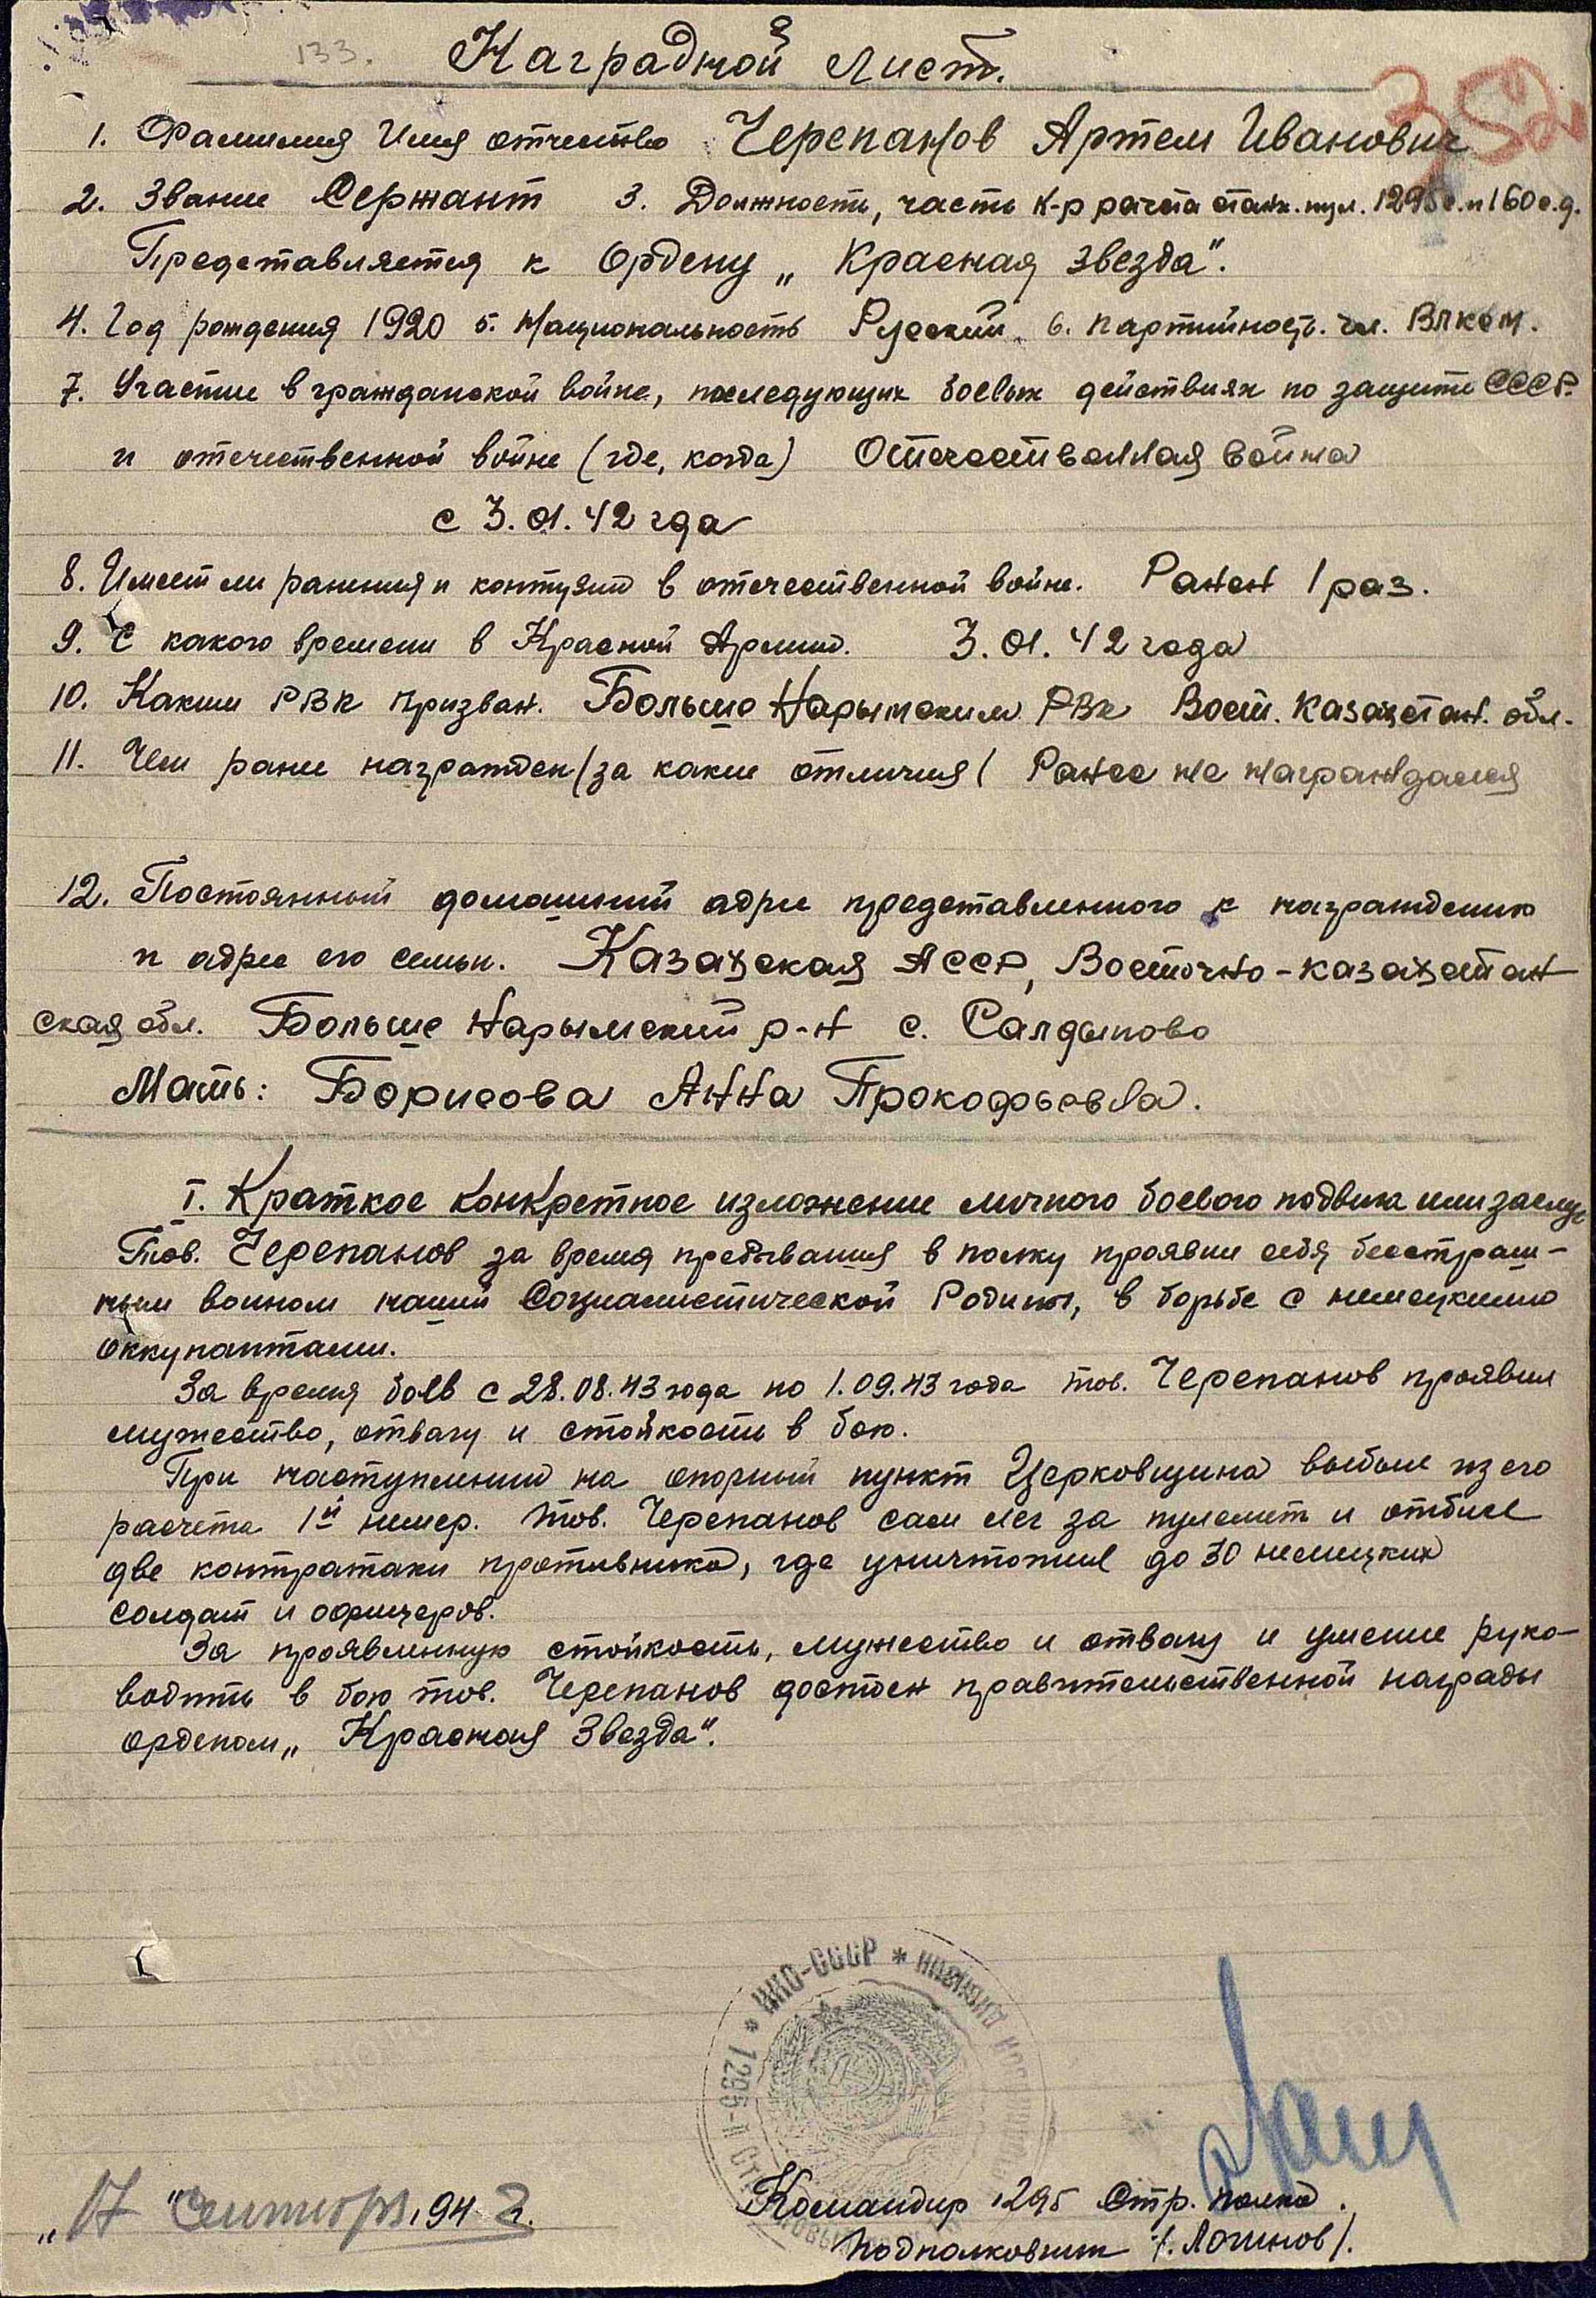 133.
Наградной лист.
352
1. Фамилия Имя отчество Черепанов Артем Иванович
2. Звание Сержант 3. Должность, часть к-р расчета станк. пул. 1295 с.п 160 с.д.
Представляется к Ордену „Красная звезда“.
4. Год рождения 1920 5. Национальность Русский 6. партийность. чл. Влксм.
7. Участие в гражданской войне, последующих боевых действиях по защите СССР.
и отечественной войне (где, когда) Отечественная война
с 3.01.42 года
8. Имеет ли ранения и контузии в отечественной войне. Ранен 1 раз.
9. С какого времени в Красной Армии. 3.01.42 года
10. Каким РВК призван. Больше Нарымским РВК Вост. Казахстан. обл.
11. Чем ранее награжден/за какие отличия/ Ранее не награждался
12. Постоянный домашний адрес представленного к награждению
и адрес его семьи. Казахская АССР, Восточно-казахстан
ская обл. Больше Нарымский р-н с. Салдыпово
Мать: Борисова Анна Прокофьевна.
I. Краткое конкретное изложение личного боевого подвига или заслуг
Тов. Черепанов за время пребывания в полку проявил себя бесстраш-
ным воином нашей Социалистической Родины, в борьбе с немецкими
оккупантами.
За время боев с 28.08.43 года по 1.09.43 года тов. Черепанов проявил
мужество, отвагу и стойкость в бою.
При наступлении на опорный пункт Церковщина выбыл из его
расчета 1й номер. Тов. Черепанов сам лег за пулемет и отбил
две контратаки противника, где уничтожил до 30 немецких
солдат и офицеров.
За проявленную стойкость, мужество и отвагу и умение руко-
водить в бою тов. Черепанов достоен правительственной награды
орденом „Красная Звезда“.
* НКО-СССР * 1295-й Стрелковый
„17“ сентября 1943 г.
Командир 1295 Стр. полка.
подполковник /. Логинов/.